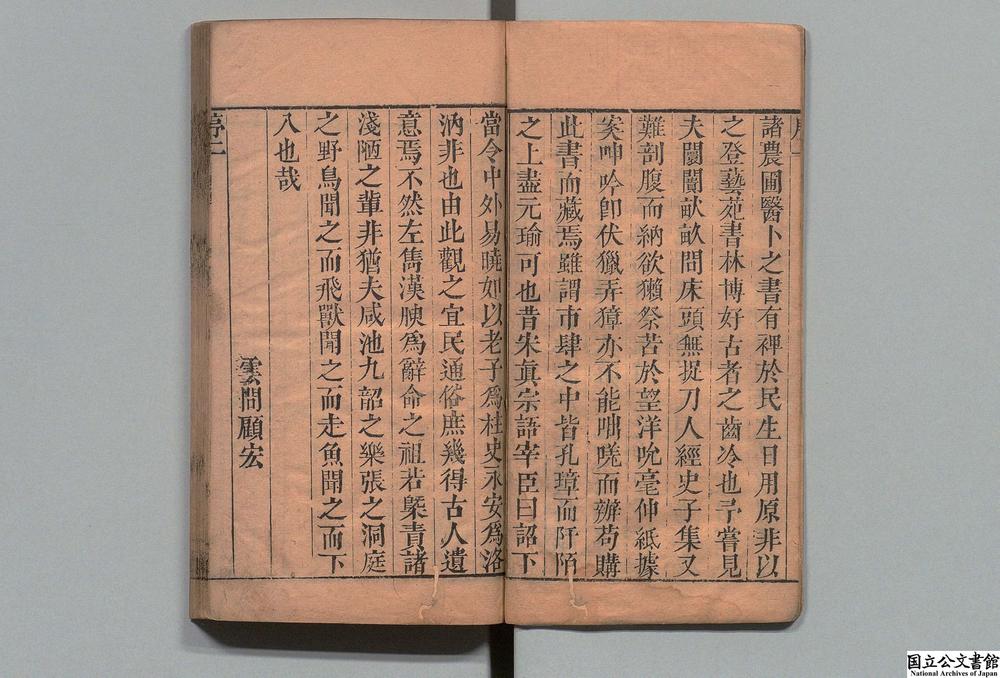 諸農圃醫卜之書有裨於民生日用原非以
之登藝苑書林博好古者之齒冷也予嘗見
夫闤闠畝畝問床頭無捉刀人經史子集又
難剖腹而納欲獺祭苦於望洋吮毫伸紙據
案呻吟卽伏獵弄獐亦不能咄嗟而辦茍購
此書而藏焉雖謂市肆之中皆孔璋而阡陌
之上盡元瑜可也昔宋眞宗語宰臣曰詔下
當令中外易曉如以老子爲柱史永安爲洛
汭非也由此觀之宜民通俗庶幾得古人遺
意焉不然左雋漢腴爲辭命之祖若槩責諸
淺陋之輩非猶夫咸池九韶之樂張之洞庭
之野鳥聞之而飛獸聞之而走魚聞之而下
入也哉
雲間顧宏
序二
国立公文書館
National Archives of Japan